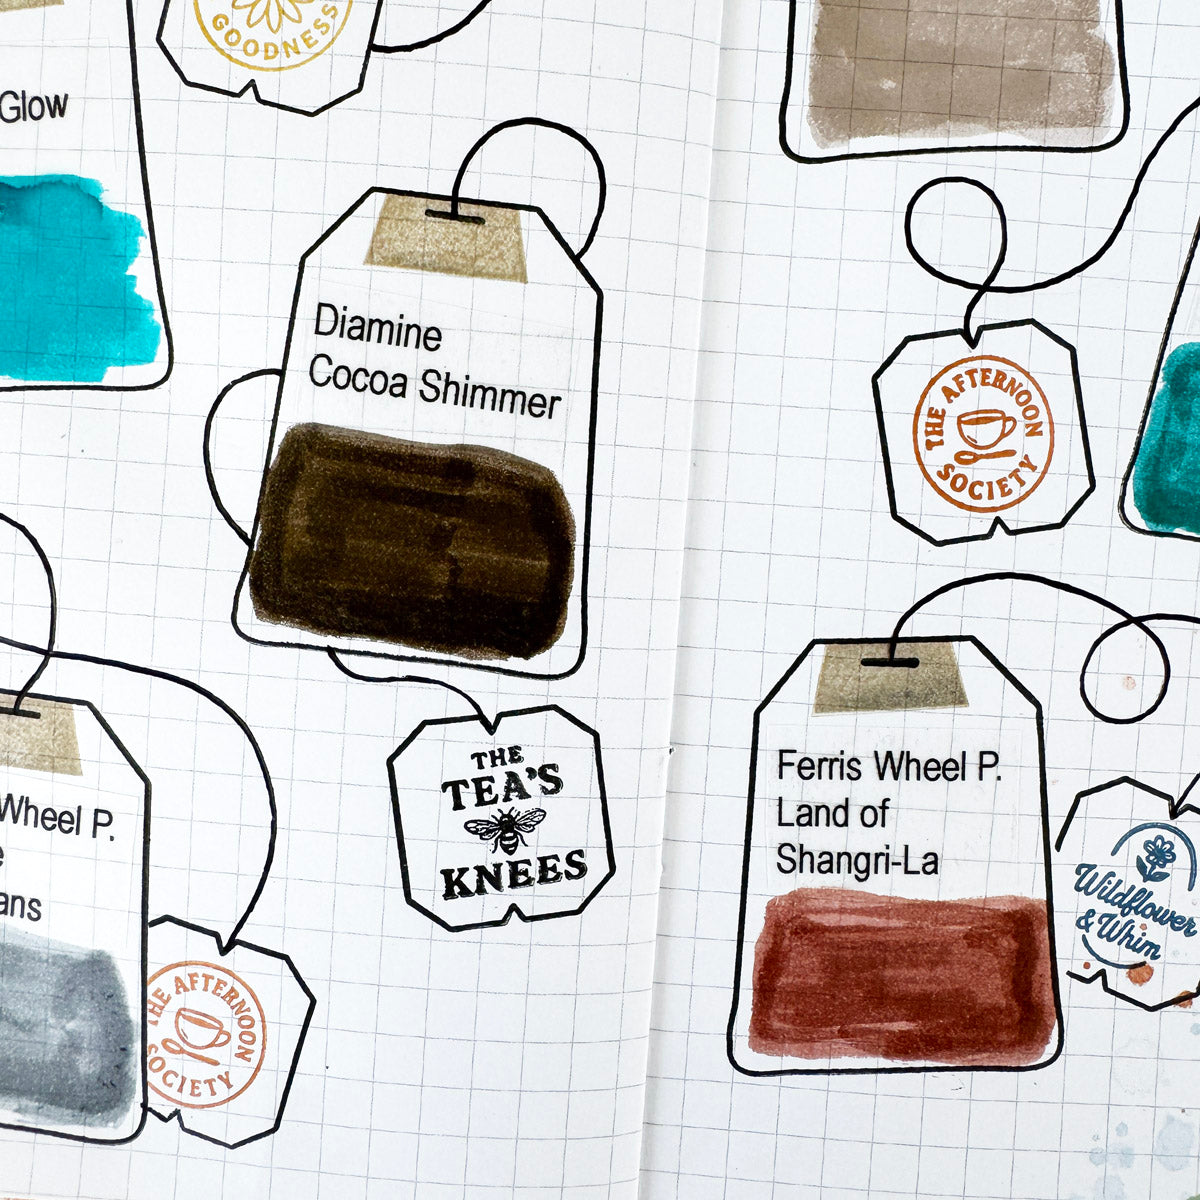 GOODNESS
Glow
Diamine
Cocoa Shimmer
THE AFTERNOON
SOCIETY
THE
TEA'S
KNEES
Wheel P.
ans
THE AFTERNOON
SOCIETY
Ferris Wheel P.
Land of
Shangri-La
Wildflower
& Whim